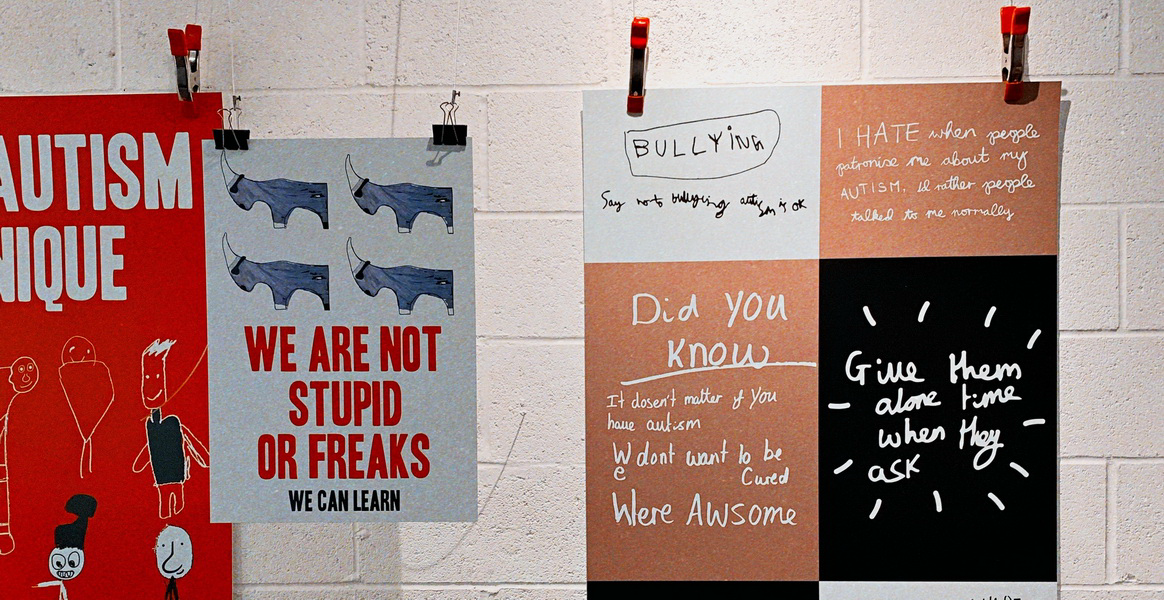 AUTISM
NIQUE
WE ARE NOT
STUPID
OR FREAKS
WE CAN LEARN
BULLYING
Say not bullying autism is ok
I HATE when people
patronise me about my
AUTISM. Id rather people
talked to me normally
Did YOU
know
It dosen't matter if You
have autism
We dont want to be
Cured
Were AWsome
Give them
alone time
when they
ask